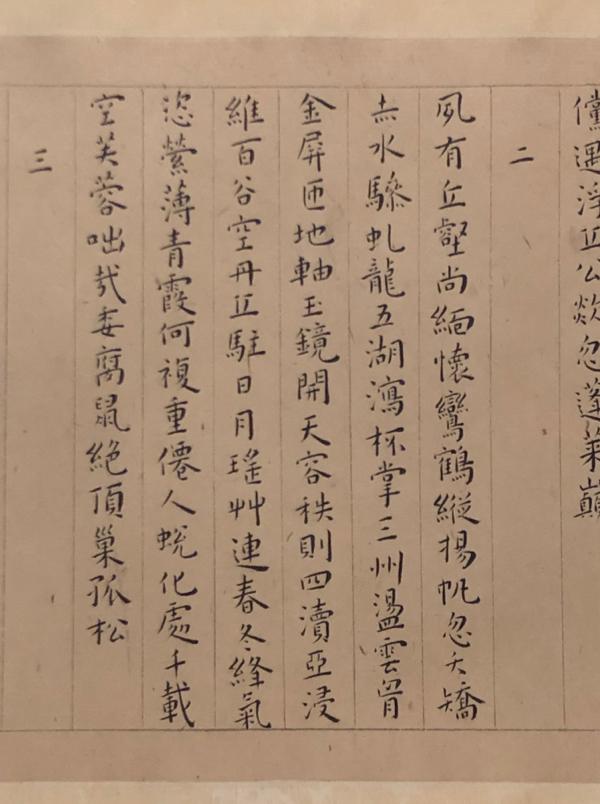 儻遇浮丘公欻忽蓬萊巔
二
夙有丘壑尚緬懷鸞鶴縱揚帆忽夭矯
赤水驂虬龍五湖瀉杯掌三州盪雲胷
金屏匝地軸玉鏡開天容秩則四瀆亞浸
維百谷空丹丘駐日月瑤艸連春冬絳氣
恣縈薄青霞何複重僊人蛻化處千載
空芙蓉咄哉委腐鼠絕頂巢孤松
三